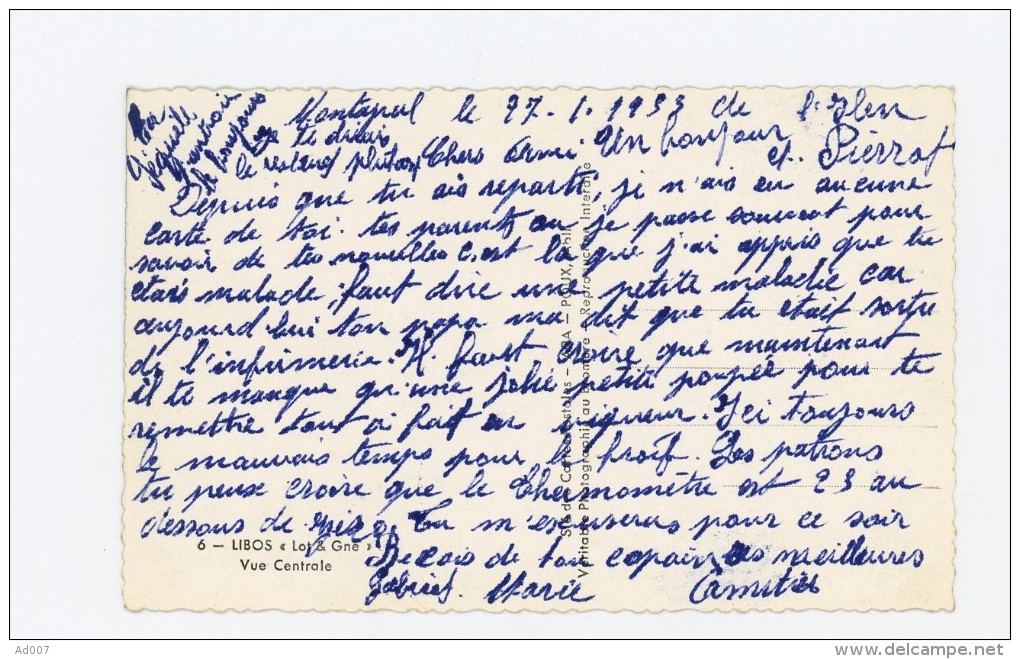 le 27-1-1953 de
je te dirai
Chers Ami Un bonjour
Pierrot
Depuis que tu ais reparti, je n'ais eu aucune
carte de toi. tes parents ou je passe souvent pour
savoir de tes nouvelles c'est la que j'ai appris que tu
etais malade, faut dire une petite maladie car
aujourd hui ton papa ma dit que tu etait sortie
de l'infirmerie. Il faut croire que maintenant
il te manque qu'une jolie petite poupée pour te
remettre tout à fait en vigueur. Ici toujours
le mauvais temps pour le froid. Les patrons
tu peux croire que le thermomètre est 23 au
dessous de Tu m'excuseras pour ce soir
6 — LIBOS « Lot & Gne »
Vue Centrale
Reçois de ton copain les meilleures
Marie Amitiés
Sté des Cartes Postales
Véritable Photographie au Bromure - Reproduction Interdite
Ad007
www.delcampe.net